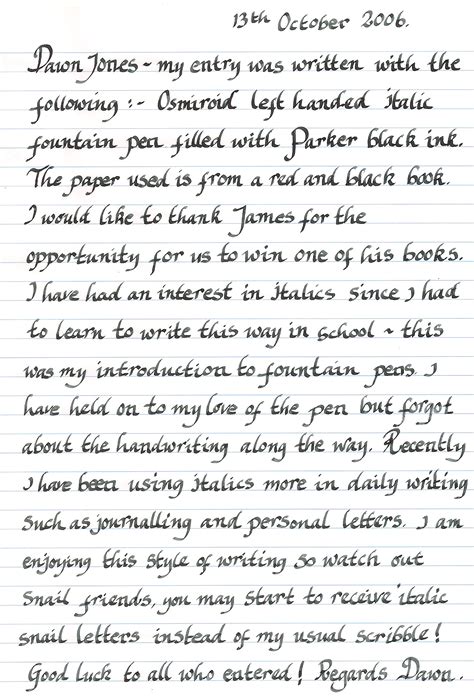 13th October 2006.
Dawn Jones ~ my entry was written with the
following :- Osmiroid left handed italic
fountain pen filled with Parker black ink.
The paper used is from a red and black book.
I would like to thank James for the
opportunity for us to win one of his books.
I have had an interest in italics since I had
to learn to write this way in school ~ this
was my introduction to fountain pens. I
have held on to my love of the pen but forgot
about the handwriting along the way. Recently
I have been using italics more in daily writing
such as journalling and personal letters. I am
enjoying this style of writing so watch out
snail friends, you may start to receive italic
snail letters instead of my usual scribble!
Good luck to all who entered! Regards Dawn.